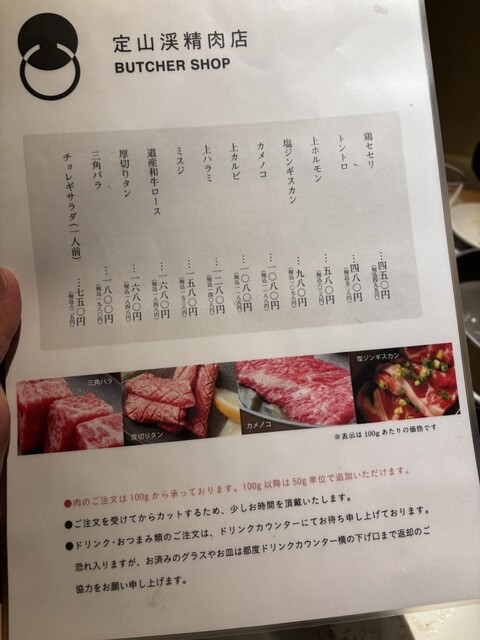 定山渓精肉店
BUTCHER SHOP
鶏セセリ …四五〇円
（税込四九五円）
トントロ …四八〇円
上ホルモン …五八〇円
塩ジンギスカン …九八〇円
カメノコ …一〇八〇円
上カルビ …一〇八〇円
上ハラミ …一二八〇円
ミスジ …一五八〇円
道産和牛ロース …一六八〇円
厚切りタン …一六八〇円
三角バラ …一八〇〇円
チョレギサラダ(一人前) …七五〇円
三角バラ
厚切りタン
カメノコ
塩ジンギスカン
※表示は100gあたりの価格です
●肉のご注文は100gから承っております。100g以降は50g単位で追加いただけます。
●ご注文を受けてからカットするため、少しお時間を頂戴いたします。
●ドリンク・おつまみ類のご注文は、ドリンクカウンターにてお待ち申し上げております。
恐れ入りますが、お済みのグラスやお皿は都度ドリンクカウンター横の下げ口まで返却のご
協力をお願い申し上げます。